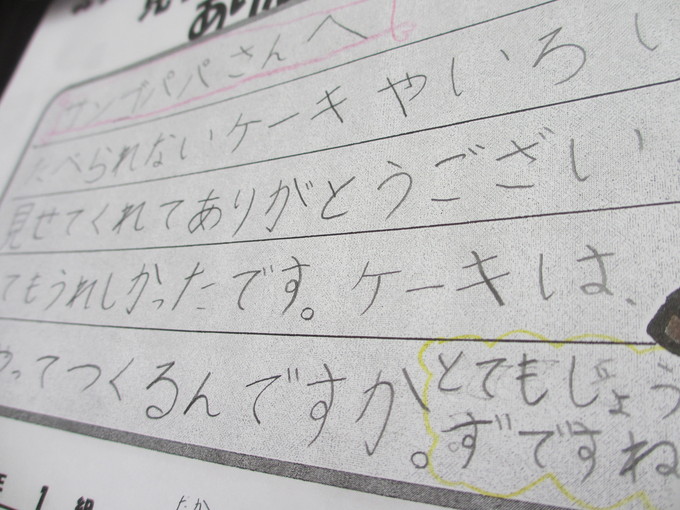 サンプパパさんへ
たべられないケーキやいろい
見せてくれてありがとうござい
てもうれしかったです。ケーキは、
やってつくるんですか。
とてもじょう
ずですね
1組